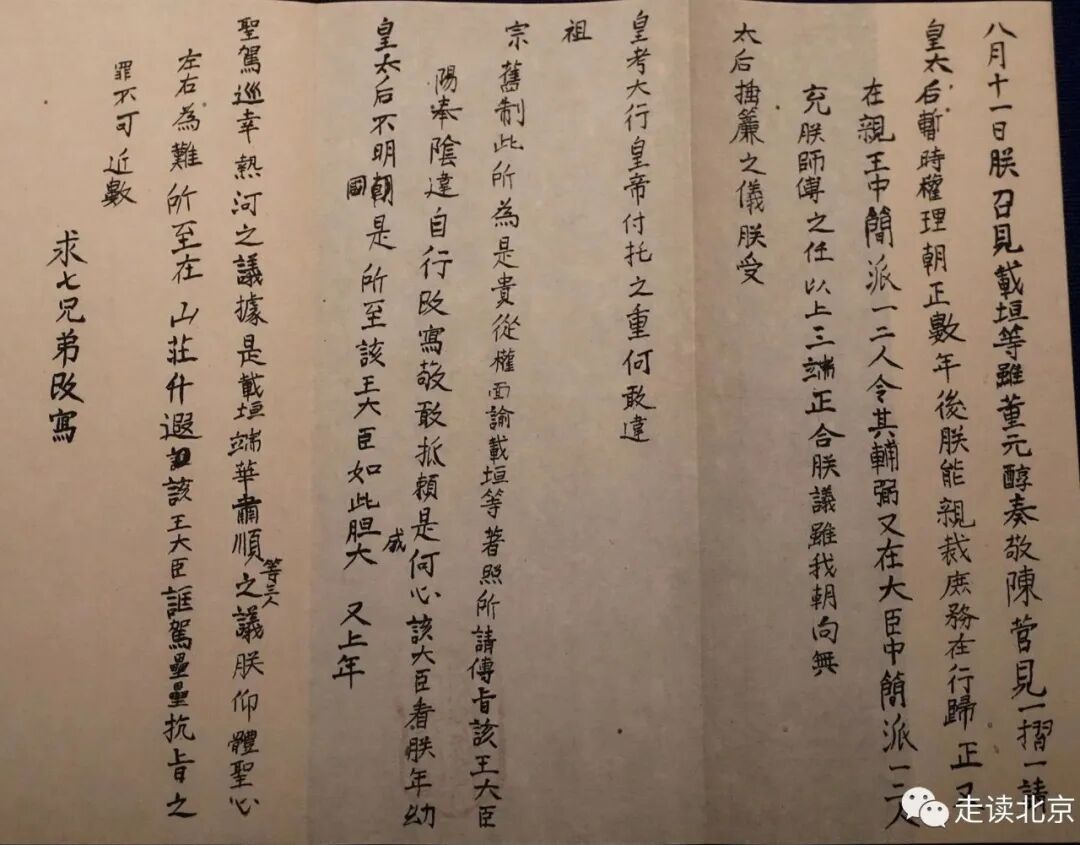 八月十一日朕召見載垣等雖董元醇奏敬陳管見一摺一請
皇太后暫時權理朝正數年後朕能親裁庶務在行歸正又
在親王中簡派一二人令其輔弼又在大臣中簡派一二人
充朕師傅之任以上三端正合朕議雖我朝向無
太后垂簾之儀朕受
皇考大行皇帝付托之重何敢違
祖
宗舊制此所為是貴從權面諭載垣等著照所請傳旨該王大臣
陽奉陰違自行改寫敬敢抵賴是何心該大臣看朕年幼
皇太后不明國是所至該王大臣如此胆大成又上年
聖駕巡幸熱河之議據是載垣端華肅順等三人之議朕仰體聖心
左右為難所至在山莊升遐該王大臣誆駕壘壘抗旨之
罪不可近數
求七兄弟改寫
走读北京